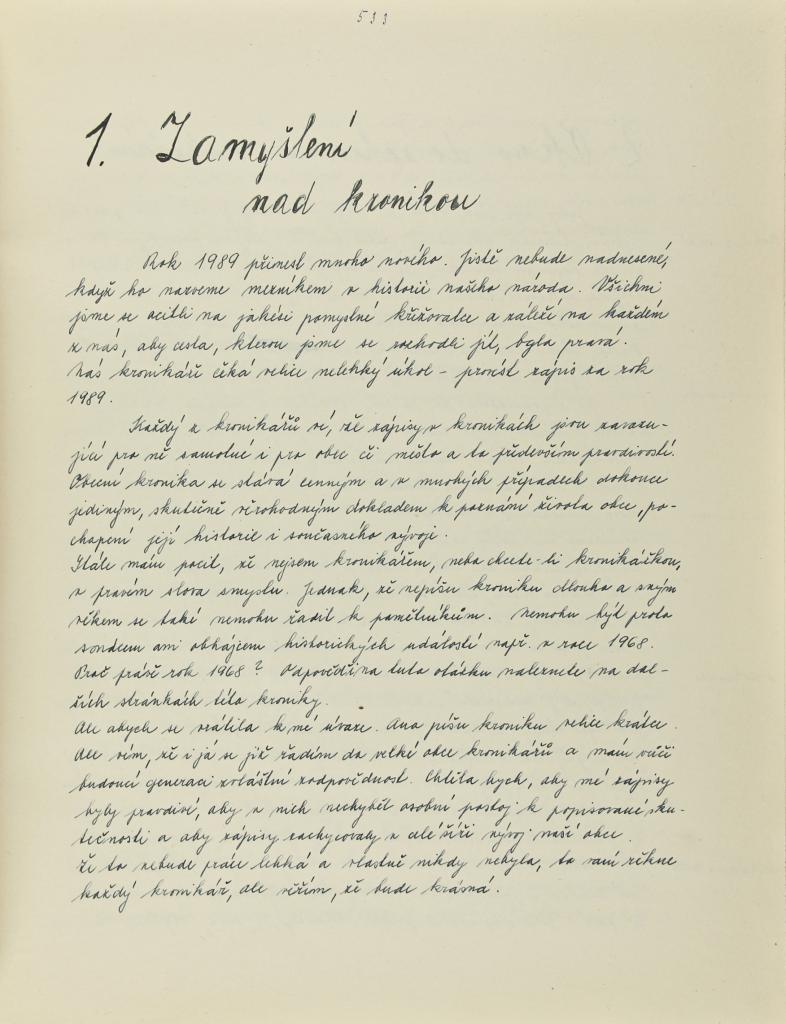 533
1. Zamyšlení
nad kronikou
Rok 1989 přinesl mnoho nového. Jistě nebude nadnesené,
když ho nazveme mezníkem v historii našeho národa. Všichni
jsme se ocitli na jakési pomyslné křižovatce a záleží na každém
z nás, aby cesta, kterou jsme se rozhodli jít, byla pravá.
Nás kronikáře čeká velice nelehký úkol - provést zápis za rok
1989.
Každý z kronikářů ví, že zápisy v kronikách jsou zavazu-
jící pro ně samotné i pro obec či město a to především pravdivostí.
Obecní kronika se stává cenným a v mnohých případech dokonce
jediným, skutečně věrohodným dokladem k poznání života obce, po-
chopení její historie i současného vývoje.
Stále mám pocit, že nejsem kronikářem, nebo chcete-li kronikářkou,
v pravém slova smyslu. Jednak, že nepíšu kroniku dlouho a svým
věkem se také nemohu řadit k pamětníkům. Nemohu být proto
soudcem ani obhájcem historických událostí např. v roce 1968.
Proč právě rok 1968? Odpověď na tuto otázku naleznete na dal-
ších stránkách této kroniky.
Ale abych se vrátila k mé úvaze. Ano píšu kroniku velice krátce.
Ale vím, že i já se již řadím do velké obce kronikářů a mám vůči
budoucí generaci zvláštní zodpovědnost. Chtěla bych, aby mé zápisy
byly pravdivé, aby v nich nechyběl osobní postoj k popisované sku-
tečnosti a aby zápisy zachycovaly v celé šíři vývoj naší obce.
Že to nebude práce lehká a vlastně nikdy nebyla, to vám řekne
každý kronikář, ale věřím, že bude krásná.